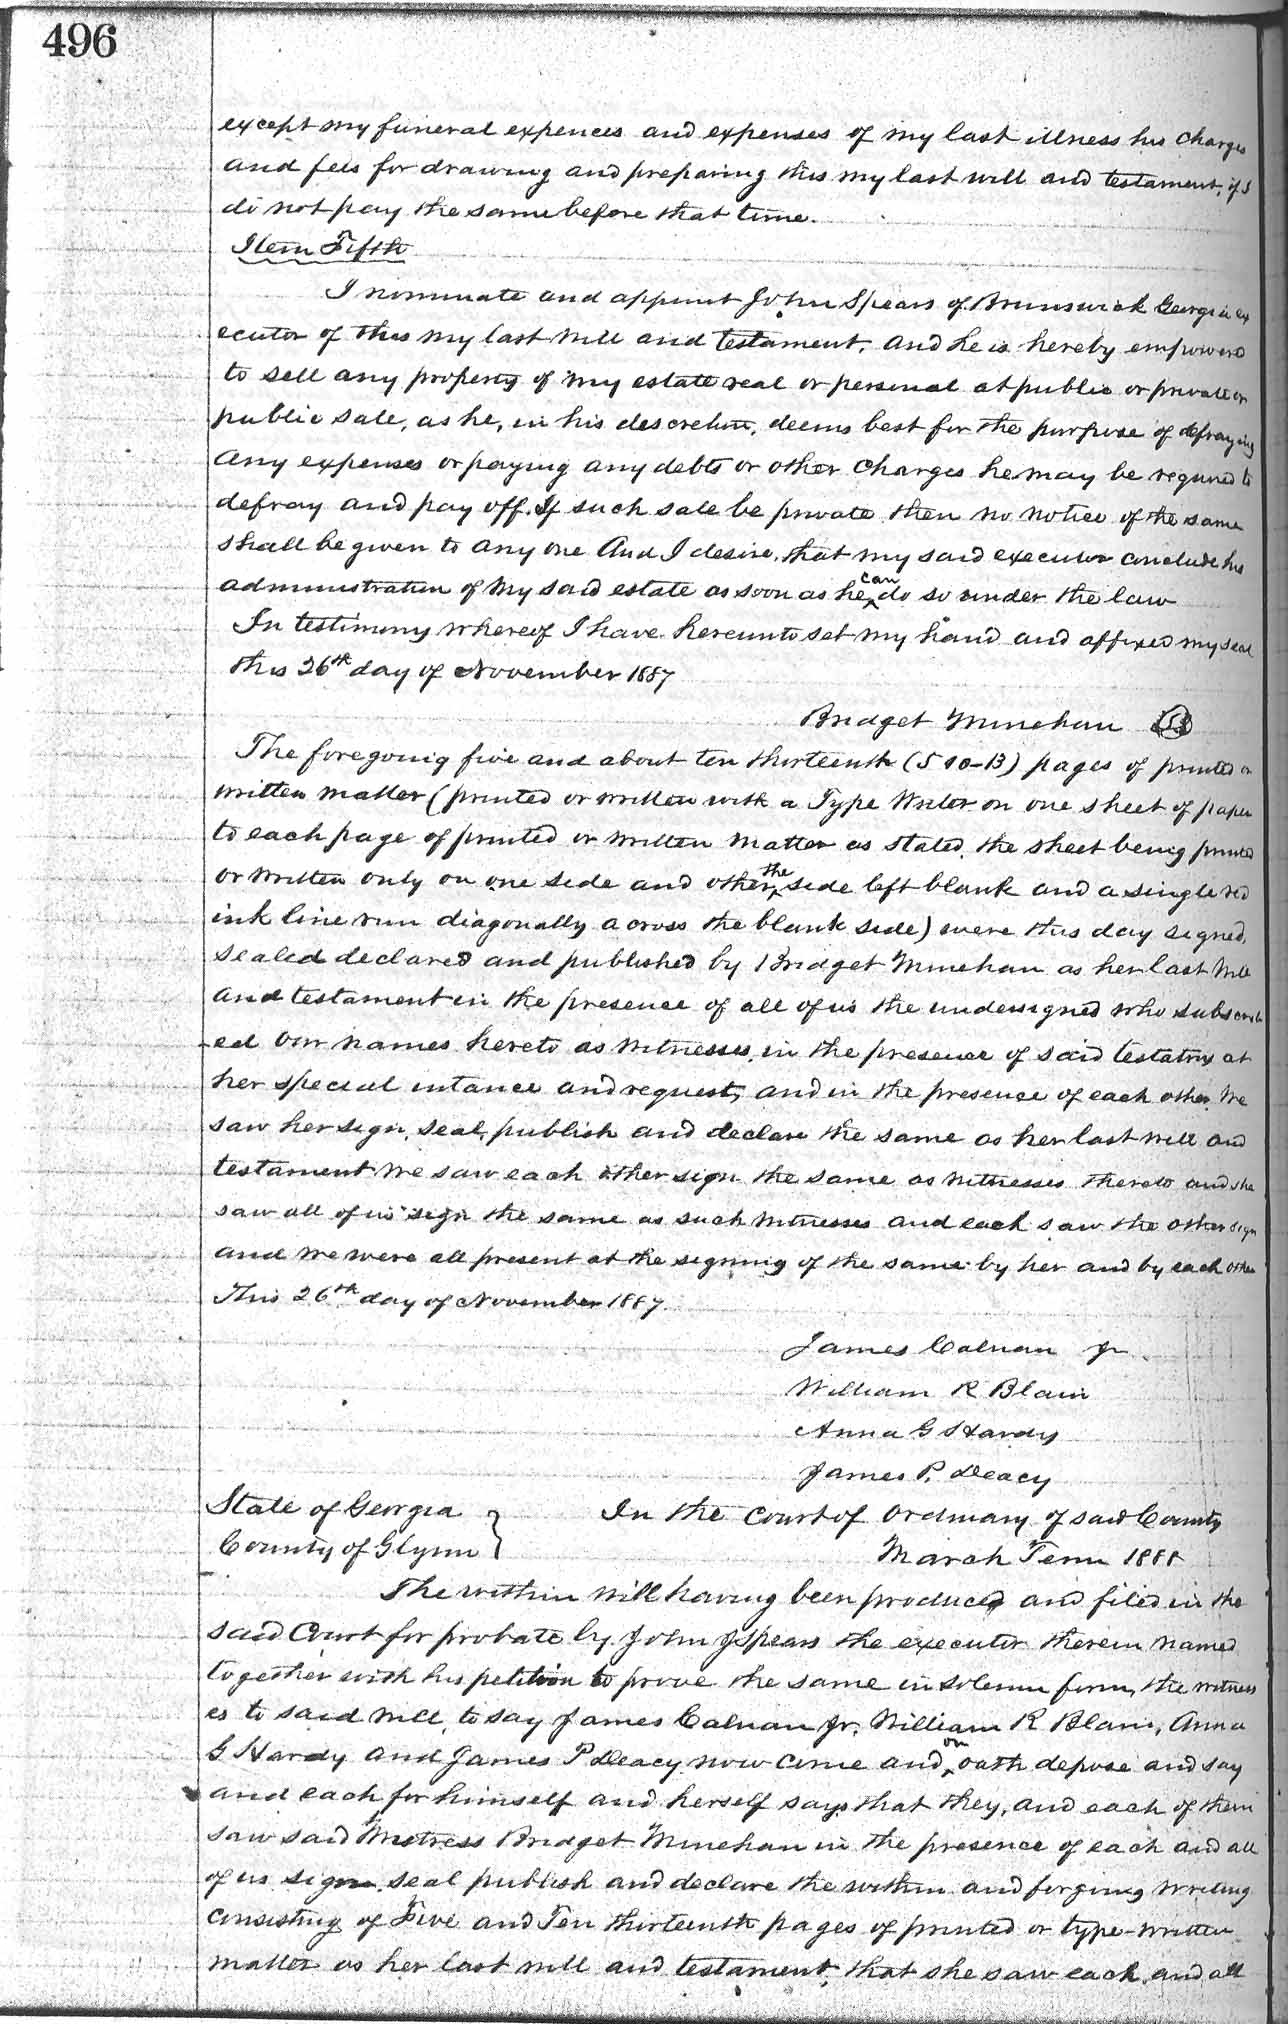 496
except my funeral expences and expenses of my last illness his charges
and fees for drawing and preparing this my last will and testament, if I
do not pay the same before that time.
Item Fifth
I nominate and appoint John Spears of Brunswick Georgia ex
ecutor of this my last will and testament, and he is hereby empowered
to sell any property of my estate real or personal at public or private or
public sale, as he, in his descretion, deems best for the purpose of defraying
any expenses or paying any debts or other charges he may be required to
defray and pay off. If such sale be private then no notice of the same
shall be given to any one And I desire that my said executor conclude his
administration of my said estate as soon as he can do so under the law
In testimony whereof I have hereunto set my hand and affixed my seal
this 26th day of November 1887
Bridget Minehan LS
The foregoing five and about ten thirteenth (5 10-13) pages of printed or
written matter (printed or written with a Type Writer on one sheet of paper
to each page of printed or written matter as stated, the sheet being printed
or written only on one side and other the side left blank and a single red
ink line run diagonally across the blank side) were this day signed,
sealed declared and published by Bridget Minehan as her last will
and testament in the presence of all of us the undersigned who subscrib
ed our names hereto as witnesses, in the presence of said testatrix at
her special intance and request, and in the presence of each other. We
saw her sign, seal, publish and declare the same as her last will and
testament we saw each other sign the same as witnesses thereto and she
saw all of us sign the same as such witnesses and each saw the other sign
and we were all present at the signing of the same by her and by each other
This 26th day of November 1887.
James Calnan Jr
William R Blain
Anna G Hardy
James P. Deacy
State of Georgia } In the Court of Ordinary of said County
County of Glynn } March Term 1888
The within will having been produced and filed in the
said Court for probate by John J Spears the executor therein named
together with his petition to prove the same in solemn form, the witness
es to said will, to say James Calnan Jr. William R Blain, Anna
G Hardy and James P Deacy now come and on oath depose and say
and each for himself and herself says that they, and each of them
saw said Mistress Bridget Minehan in the presence of each and all
of us sign seal publish and declare the within and forgoing writing
consisting of Five and Ten thirteenth pages of printed or type-written
matter as her last will and testament, that she saw each and all